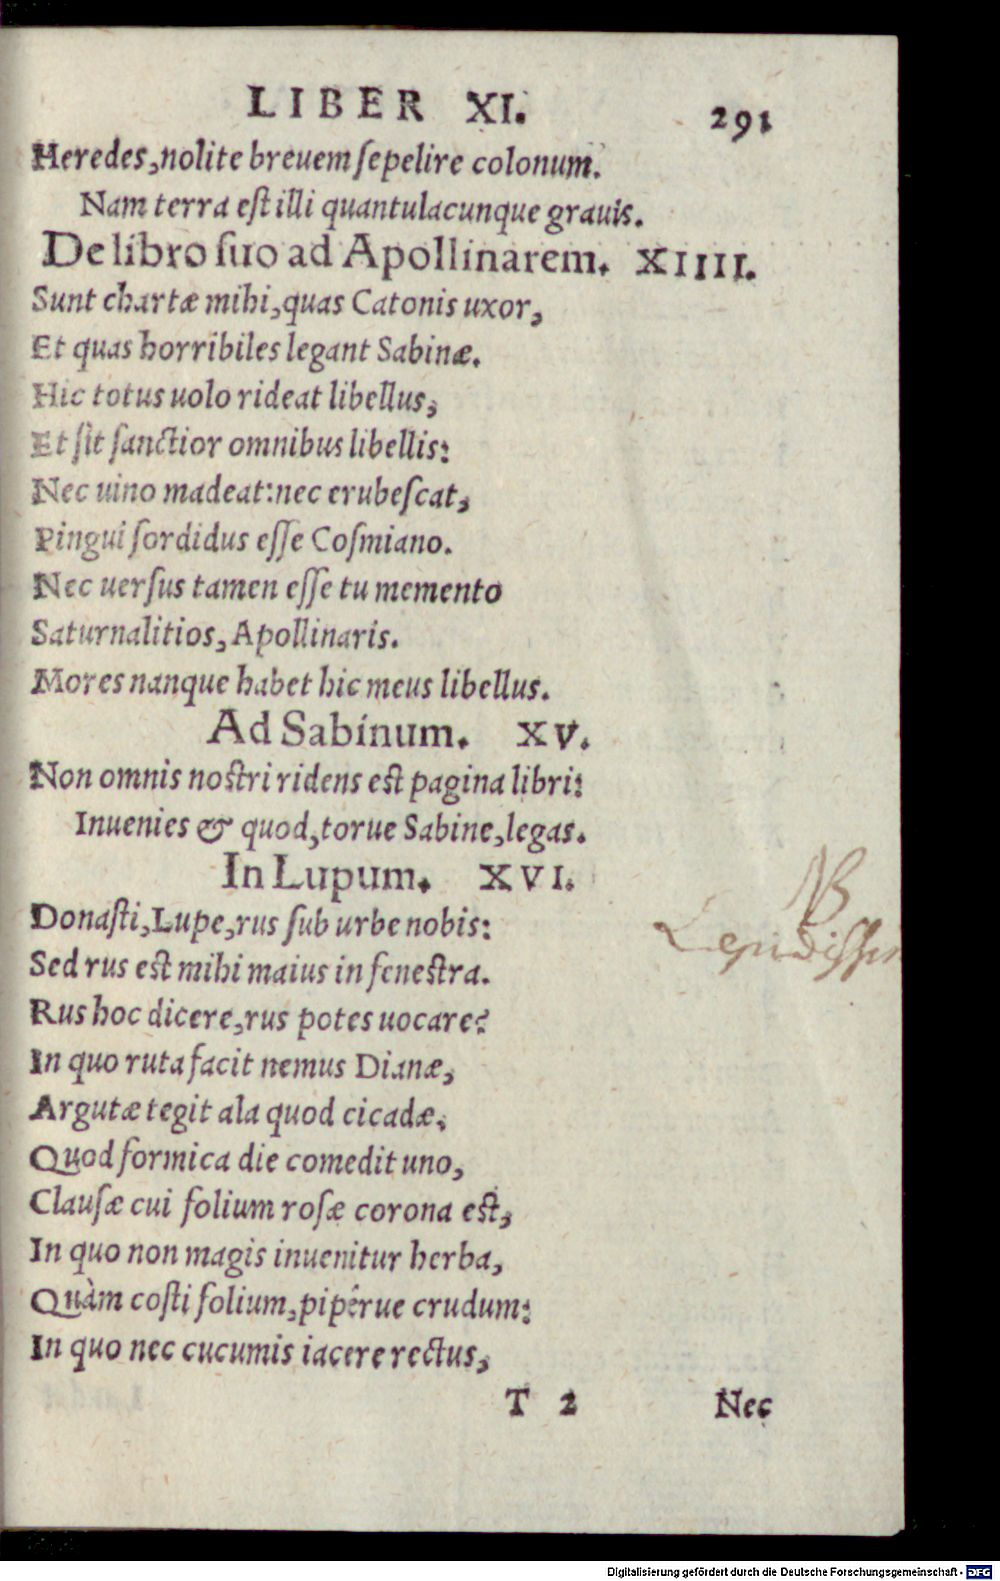 LIBER XI. 291
Heredes, nolite breuem ſepelire colonum.
Nam terra eſt illi quantulacunque grauis.
De libro ſuo ad Apollinarem. XIIII.
Sunt chartæ mihi, quas Catonis uxor,
Et quas horribiles legant Sabinæ.
Hic totus uolo rideat libellus,
Et ſit ſanctior omnibus libellis:
Nec uino madeat: nec erubeſcat,
Pingui ſordidus eſſe Coſmiano.
Nec uerſus tamen eſſe tu memento
Saturnalitios, Apollinaris.
Mores nanque habet hic meus libellus.
Ad Sabinum. XV.
Non omnis noſtri ridens eſt pagina libri:
Inuenies & quod, torue Sabine, legas.
In Lupum. XVI.
NB
Donaſti, Lupe, rus ſub urbe nobis:
Lepidiſſim
Sed rus eſt mihi maius in feneſtra.
Rus hoc dicere, rus potes uocare?
In quo ruta facit nemus Dianæ,
Argutæ tegit ala quod cicadæ,
Quod formica die comedit uno,
Clauſæ cui folium roſæ corona eſt,
In quo non magis inuenitur herba,
Quàm coſti folium, piperue crudum:
In quo nec cucumis iacere rectus,
T 2 Nec
Digitalisierung gefördert durch die Deutsche Forschungsgemeinschaft - DFG